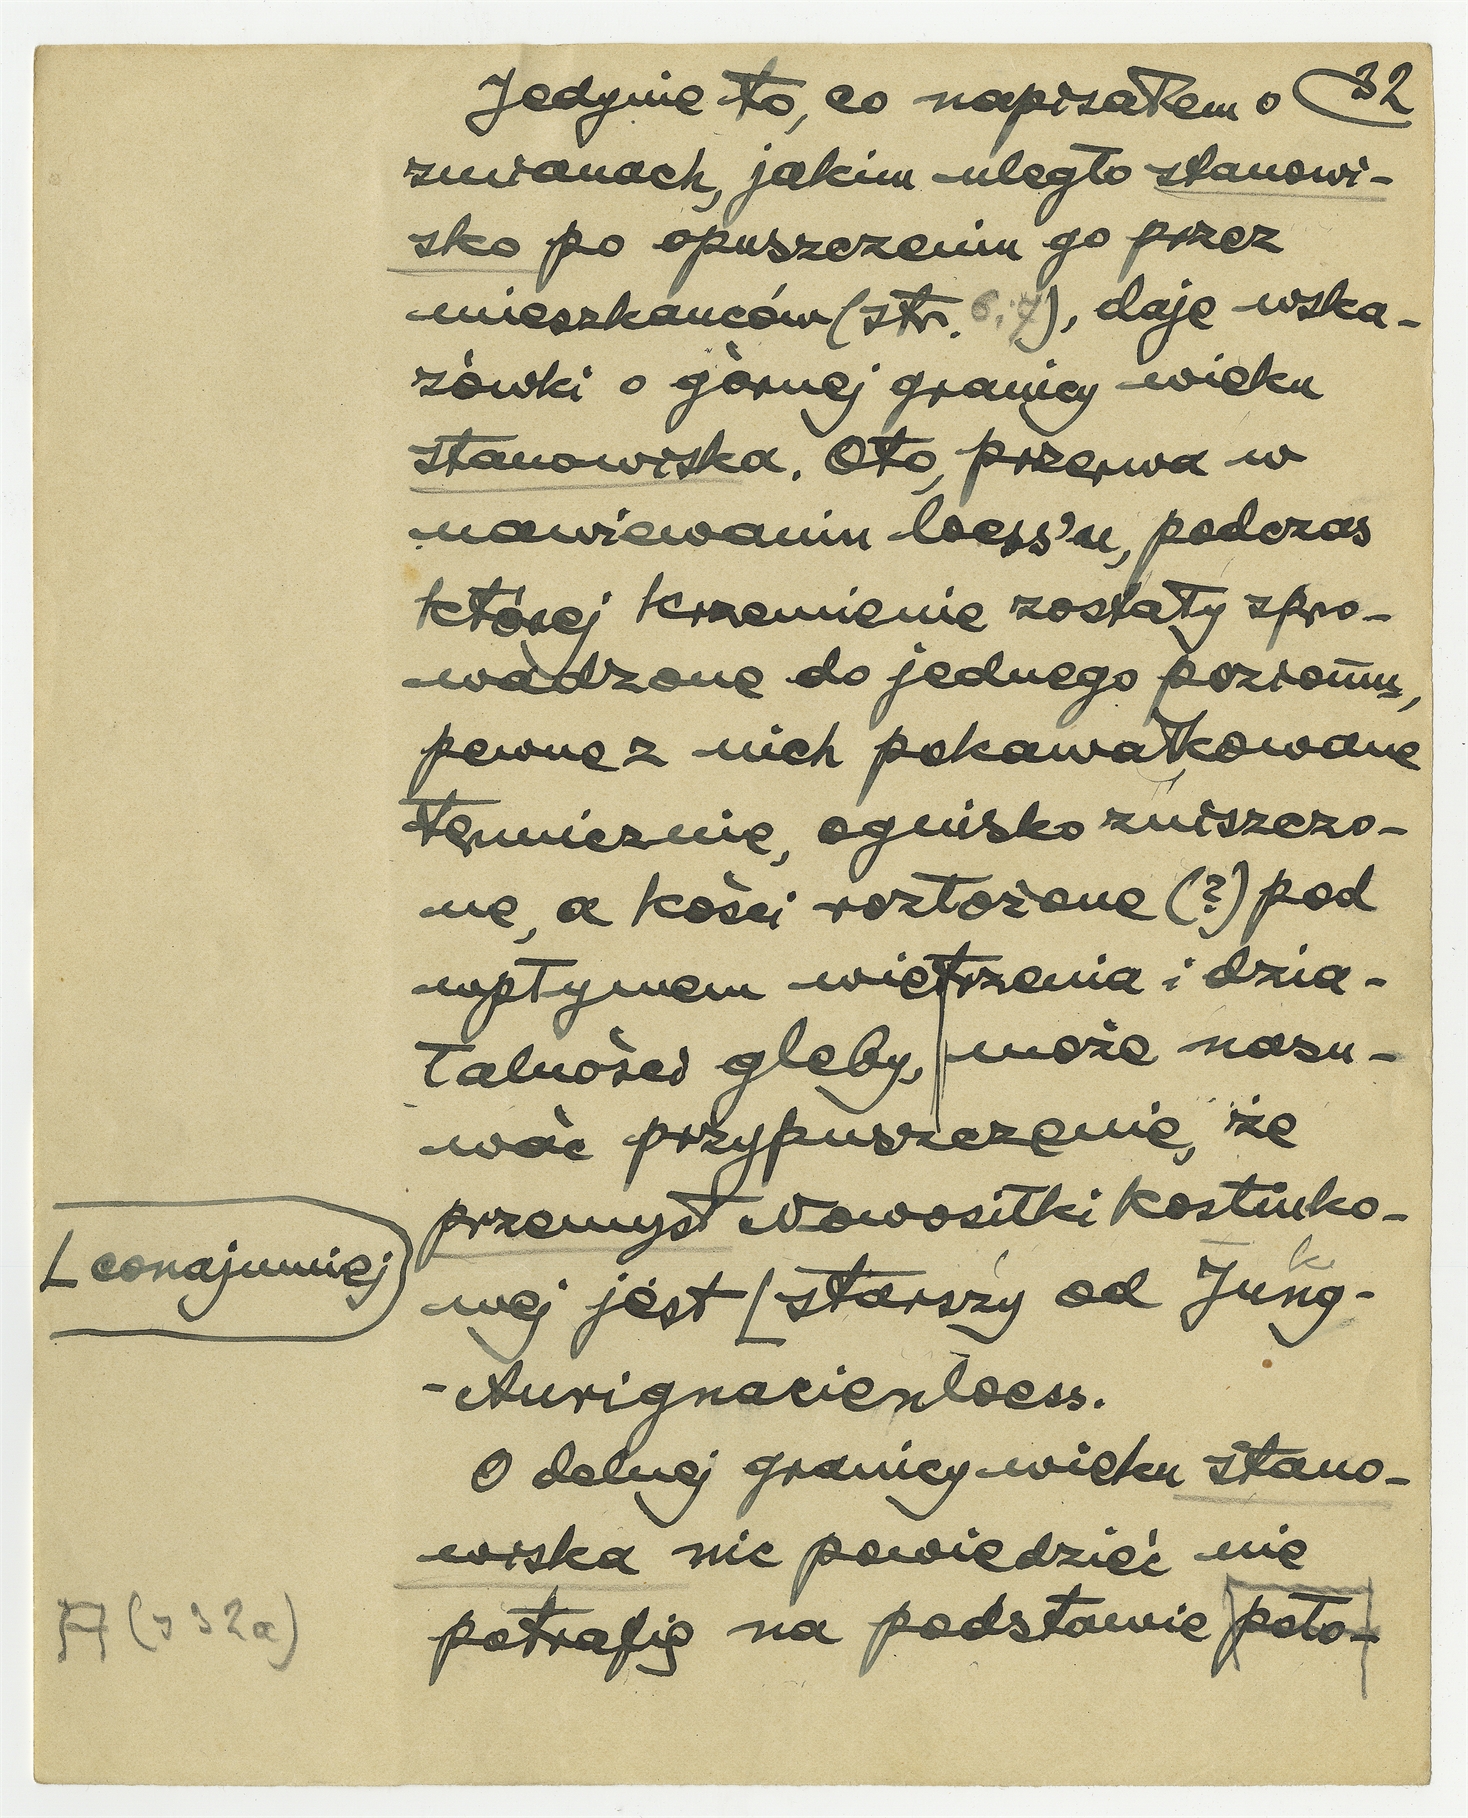 32
Jedynie to, co napisałem o
zmianach, jakim uległo stanowi-
sko po opuszczeniu go przez
mieszkańców (str. 6, 7), daje wska-
zówki o górnej granicy wieku
stanowiska. Oto, przerwa w
nawiewaniu loess'u, podczas
której krzemienie zostały spro-
wadzone do jednego poziomu,
pewne z nich pokawałkowane
termicznie, ognisko zniszczo-
ne, a kości rozłożone (?) pod
wpływem wietrzenia i dzia-
łalności gleby, może nasu-
wać przypuszczenie, że
przemysł Nowosiłki Kostiuko-
wej jest [starszy od Jung-
k
[conajmniej
-Aurignacienloess.
O dolnej granicy wieku stano-
wiska nic powiedzieć nie
potrafię na podstawie poło-
A (s 32a)